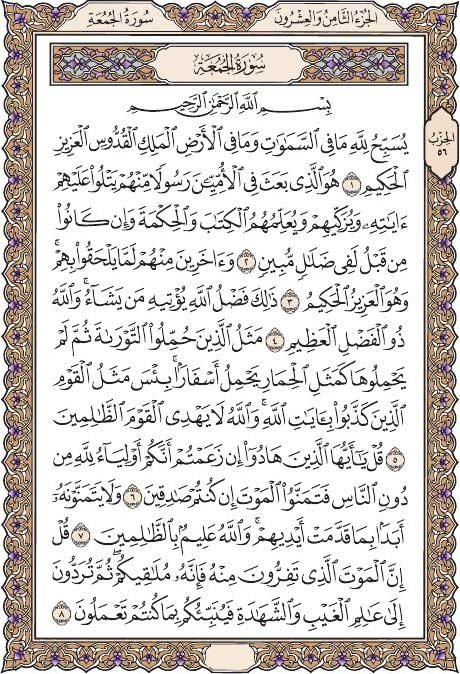 سُورَةُ الجُمُعَةِ
الجُزْءُ الثَّامِنُ وَالعِشْرُونَ
سُورَةُ الجُمُعَةِ
الحِزْبُ
٥٦
بِسْمِ ٱللَّهِ ٱلرَّحْمَٰنِ ٱلرَّحِيمِ
يُسَبِّحُ لِلَّهِ مَا فِي ٱلسَّمَٰوَٰتِ وَمَا فِي ٱلْأَرْضِ ٱلْمَلِكِ ٱلْقُدُّوسِ ٱلْعَزِيزِ
ٱلْحَكِيمِ ١ هُوَ ٱلَّذِي بَعَثَ فِي ٱلْأُمِّيِّـۧنَ رَسُولًا مِّنْهُمْ يَتْلُوا۟ عَلَيْهِمْ
ءَايَٰتِهِۦ وَيُزَكِّيهِمْ وَيُعَلِّمُهُمُ ٱلْكِتَٰبَ وَٱلْحِكْمَةَ وَإِن كَانُوا۟
مِن قَبْلُ لَفِي ضَلَٰلٍ مُّبِينٍ ٢ وَءَاخَرِينَ مِنْهُمْ لَمَّا يَلْحَقُوا۟ بِهِمْۚ
وَهُوَ ٱلْعَزِيزُ ٱلْحَكِيمُ ٣ ذَٰلِكَ فَضْلُ ٱللَّهِ يُؤْتِيهِ مَن يَشَآءُۚ وَٱللَّهُ
ذُو ٱلْفَضْلِ ٱلْعَظِيمِ ٤ مَثَلُ ٱلَّذِينَ حُمِّلُوا۟ ٱلتَّوْرَىٰةَ ثُمَّ لَمْ
يَحْمِلُوهَا كَمَثَلِ ٱلْحِمَارِ يَحْمِلُ أَسْفَارًۢاۚ بِئْسَ مَثَلُ ٱلْقَوْمِ
ٱلَّذِينَ كَذَّبُوا۟ بِـَٔايَٰتِ ٱللَّهِۚ وَٱللَّهُ لَا يَهْدِي ٱلْقَوْمَ ٱلظَّٰلِمِينَ
٥ قُلْ يَٰٓأَيُّهَا ٱلَّذِينَ هَادُوٓا۟ إِن زَعَمْتُمْ أَنَّكُمْ أَوْلِيَآءُ لِلَّهِ مِن
دُونِ ٱلنَّاسِ فَتَمَنَّوُا۟ ٱلْمَوْتَ إِن كُنتُمْ صَٰدِقِينَ ٦ وَلَا يَتَمَنَّوْنَهُۥٓ
أَبَدًۢا بِمَا قَدَّمَتْ أَيْدِيهِمْۚ وَٱللَّهُ عَلِيمٌۢ بِٱلظَّٰلِمِينَ ٧ قُلْ
إِنَّ ٱلْمَوْتَ ٱلَّذِي تَفِرُّونَ مِنْهُ فَإِنَّهُۥ مُلَٰقِيكُمْۖ ثُمَّ تُرَدُّونَ
إِلَىٰ عَٰلِمِ ٱلْغَيْبِ وَٱلشَّهَٰدَةِ فَيُنَبِّئُكُم بِمَا كُنتُمْ تَعْمَلُونَ ٨